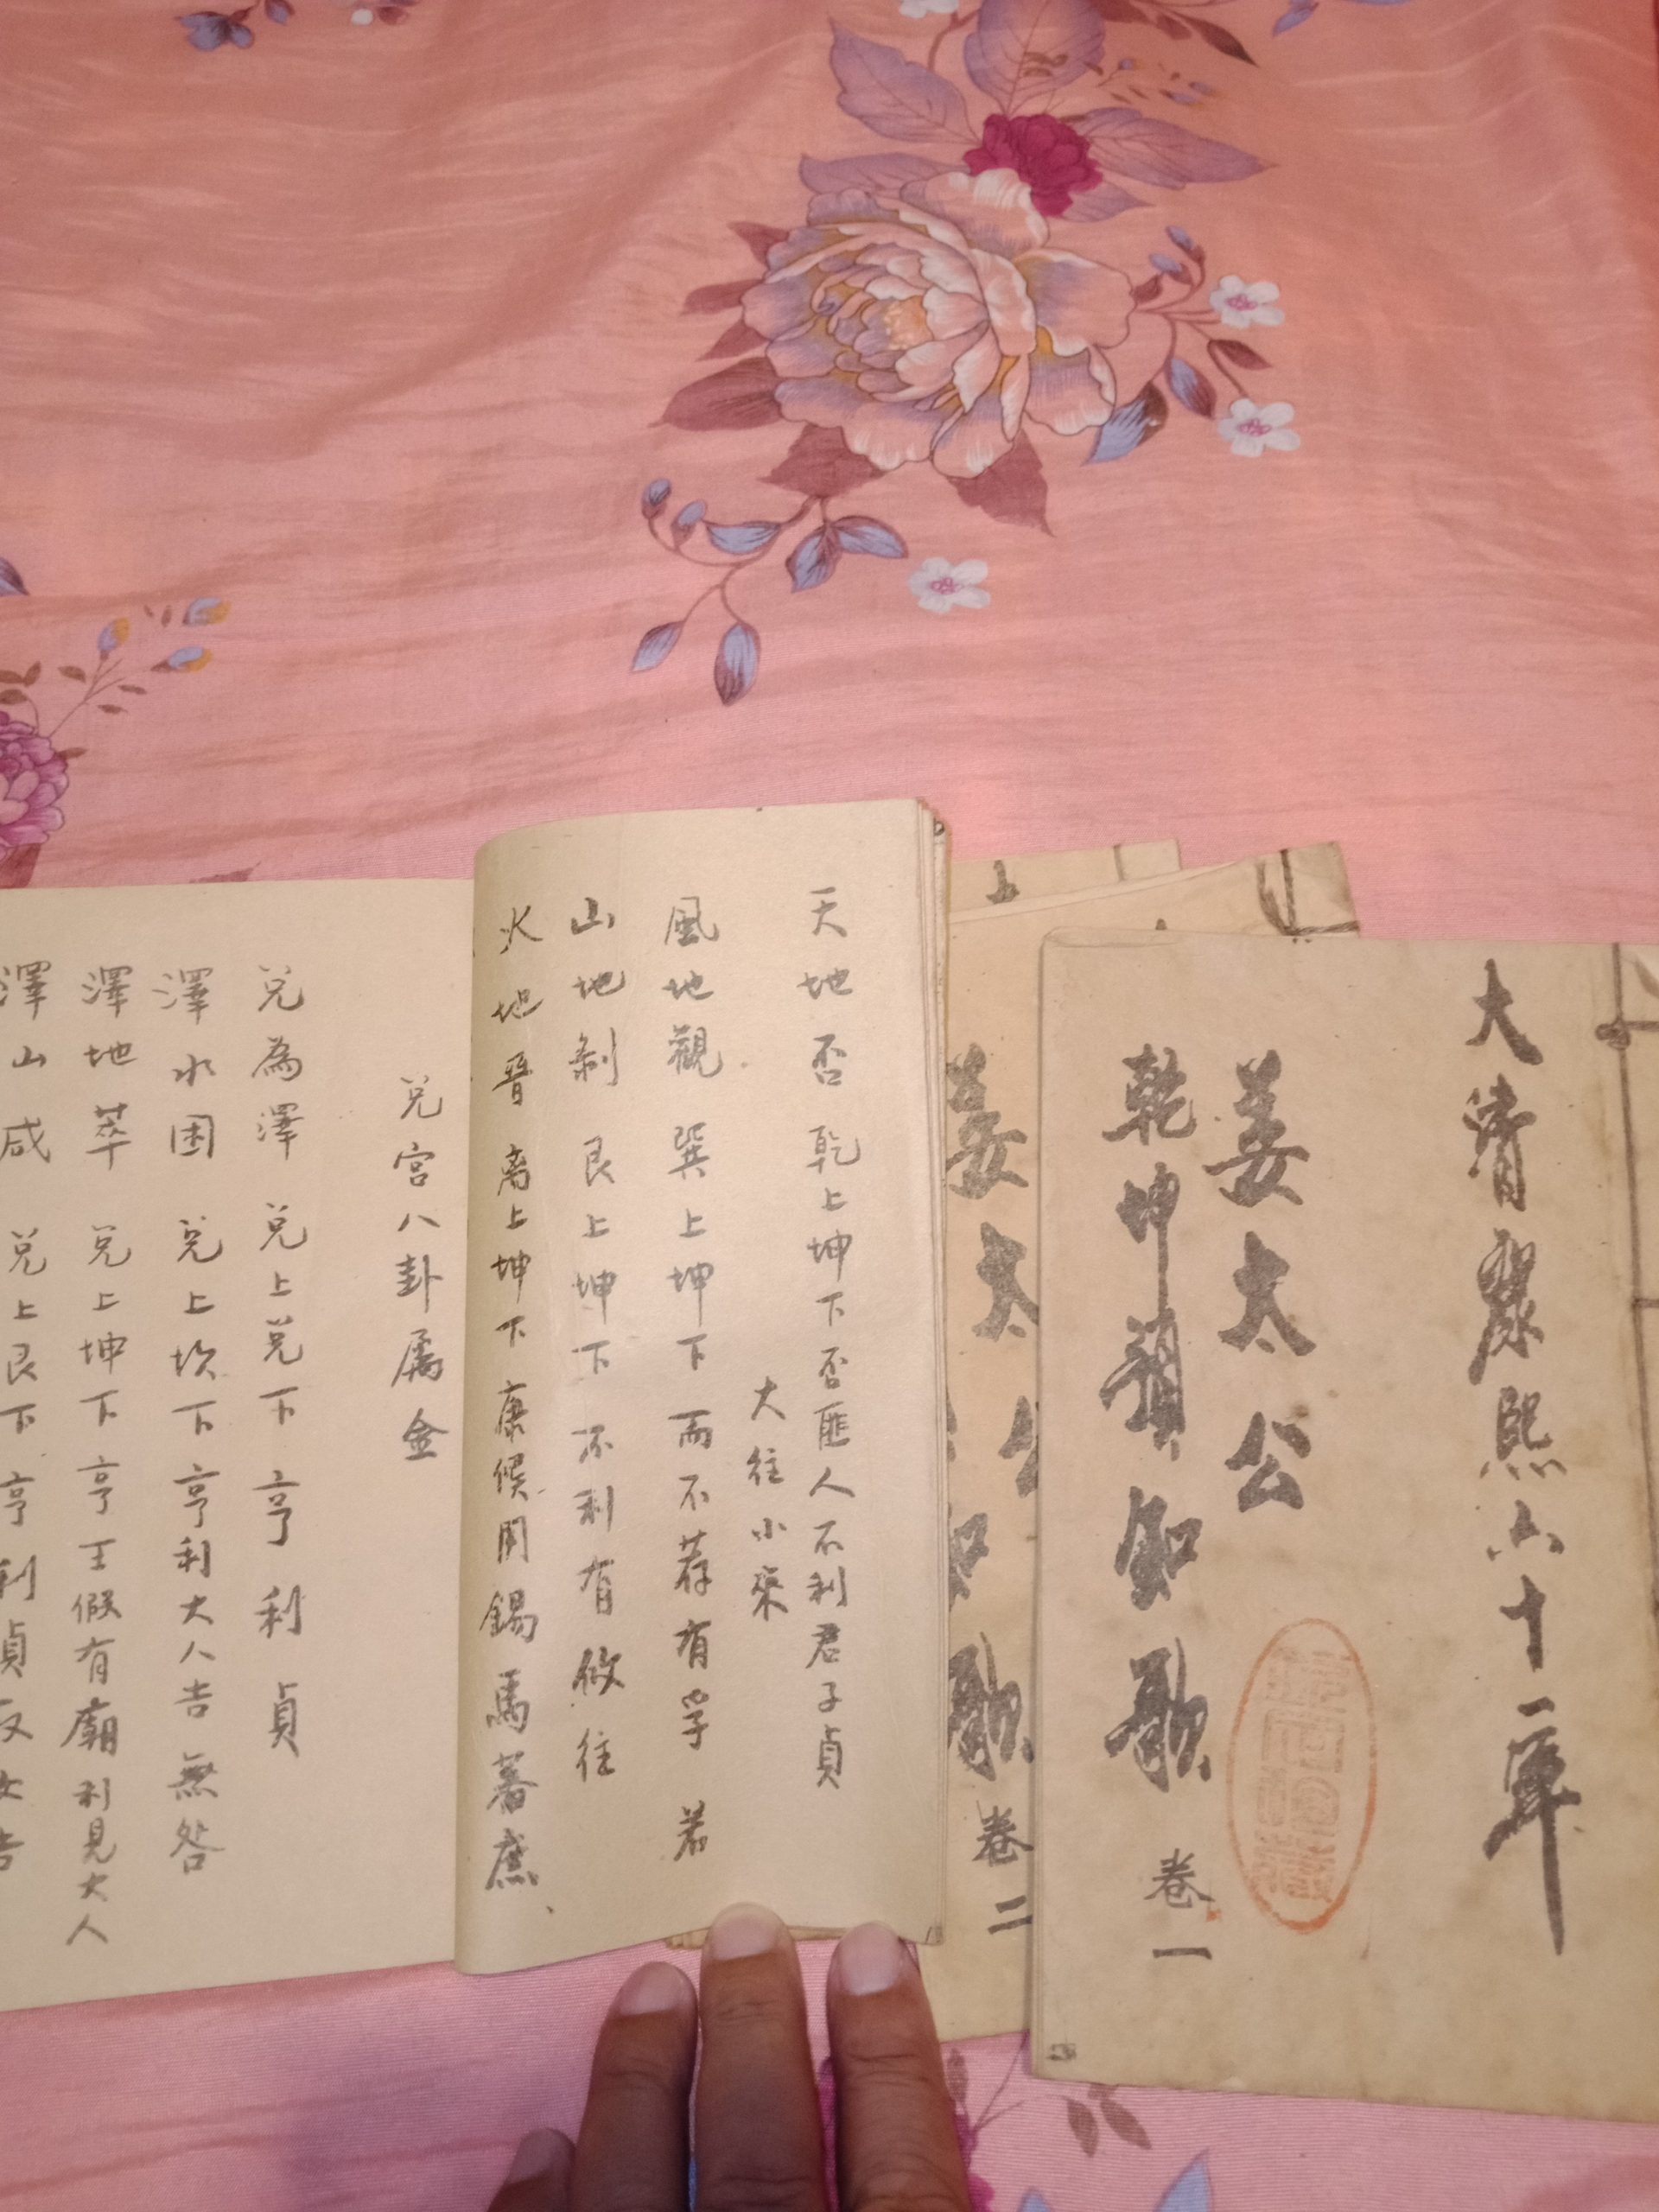 大清康熙六十一年
姜太公
乾坤預知歌
卷一
姜太公
知歌
卷二
天地否 乾上坤下否匪人不利君子貞
大往小來
風地觀 巽上坤下 而不荐有孚 若
山地剝 艮上坤下 不利有攸往
火地晉 离上坤下 康候用錫馬蕃庶、
兌宮八卦屬金
兌為澤 兌上兌下 亨利貞
澤水困 兌上坎下 亨利大人吉無咎
澤地萃 兌上坤下 亨王假有廟利見大人
澤山咸 兌上艮下 亨利貞取女吉